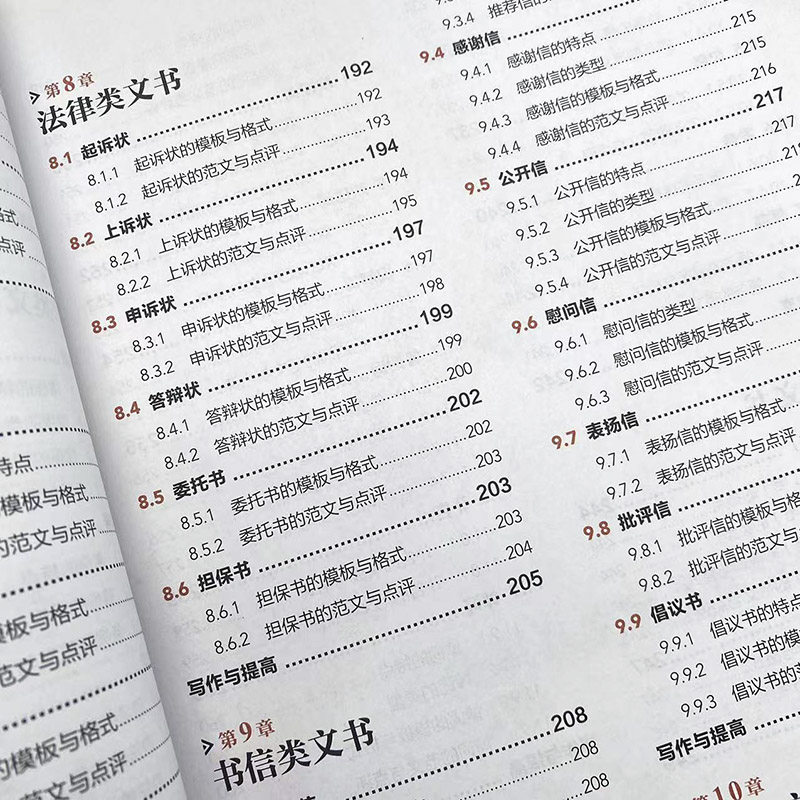 特点
的模板与格式
的范文与点评
模板与格式
范文与点评
的模板与格式
的范文与点评
第8章
法律类文书
8.1 起诉状 192
8.1.1 起诉状的模板与格式 192
8.1.2 起诉状的范文与点评 193
8.2 上诉状 194
8.2.1 上诉状的模板与格式 194
8.2.2 上诉状的范文与点评 195
8.3 申诉状 197
8.3.1 申诉状的模板与格式 197
8.3.2 申诉状的范文与点评 198
8.4 答辩状 199
8.4.1 答辩状的模板与格式 199
8.4.2 答辩状的范文与点评 200
8.5 委托书 202
8.5.1 委托书的模板与格式 202
8.5.2 委托书的范文与点评 203
8.6 担保书 203
8.6.1 担保书的模板与格式 203
8.6.2 担保书的范文与点评 204
写作与提高 205
第9章
书信类文书
208
208
208
9.3.4 推荐信
9.4 感谢信
9.4.1 感谢信的特点
9.4.2 感谢信的类型 215
9.4.3 感谢信的模板与格式 215
9.4.4 感谢信的范文与点评 216
9.5 公开信 217
9.5.1 公开信的特点 217
9.5.2 公开信的类型
9.5.3 公开信的模板与格式
9.5.4 公开信的范文与点评
9.6 慰问信
9.6.1 慰问信的类型
9.6.2 慰问信的模板与格式
9.6.3 慰问信的范文与点评
9.7 表扬信
9.7.1 表扬信的模板与格式
9.7.2 表扬信的范文与点评
9.8 批评信
9.8.1 批评信的模板与
9.8.2 批评信的范文与
9.9 倡议书
9.9.1 倡议书的特点
9.9.2 倡议书的模板
9.9.3 倡议书的范
写作与提高
第10章